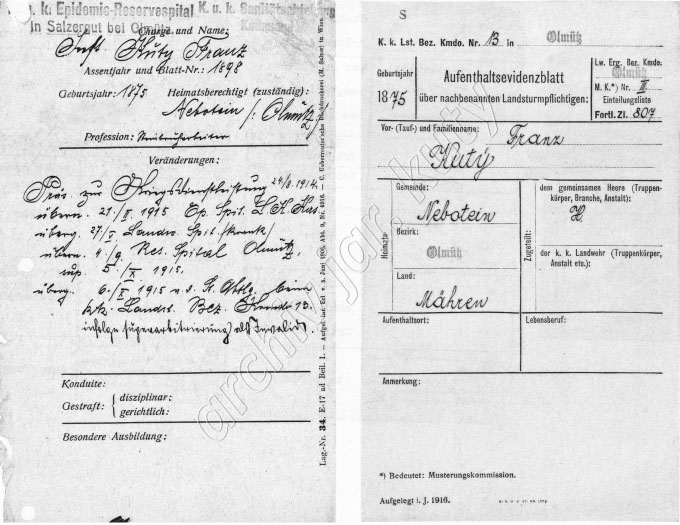 k. k. Epidemie-Reservespital
in Salzergut bei Olmütz
K. u. k. Sanitätsabteilung
Charge und Name:
Inft. Kutý Franz
Assentjahr und Blatt-Nr.: 1898
Geburtsjahr: 1875 Heimatsberechtigt (zuständig):
Nebotein / Olmütz
Profession:
Veränderungen:
Präs. zur Kriegsdienstleistung 24/8. 1914,
übern. 21/II. 1915 Ep. Spit. Z. H. Kas
überg. 27/V Landw. Spit. (krank)
übern. 4/9. Res. Spital Olmütz,
sup. 5/X 1915,
überg. 6/X 1915 v. d. St. Abtlg. beim
k.k. Landst. Bez. Kmdo 13.
infolge Superarbitrierung als Invalid.
Konduite:
Gestraft: { disziplinar:
gerichtlich:
Besondere Ausbildung:
Lag.-Nr. 34. E-17 ad Beil. I.
S
K. k. Lst. Bez. Kmdo. Nr. 13 in Olmütz
Geburtsjahr
1875
Aufenthaltsevidenzblatt
über nachbenannten Landsturmpflichtigen:
Lw. Erg. Bez. Kmdo:
Olmütz
M. K.*) Nr. II
Einteilungsliste
Fortl. Zl. 807
Vor- (Tauf-) und Familienname:
Franz
Kutý
Heimats-
Gemeinde:
Nebotein
Bezirk:
Olmütz
Land:
Mähren
Zugeteilt:
dem gemeinsamen Heere (Truppen-
körper, Branche, Anstalt):
H
der k. k. Landwehr (Truppenkörper,
Anstalt etc.):
Aufenthaltsort:
Lebensberuf:
Anmerkung:
*) Bedeutet: Musterungskommission.
Aufgelegt i. J. 1916.
archiv jar. kutý